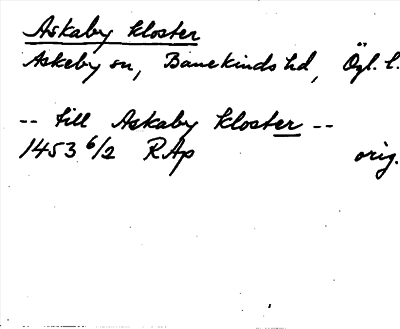 Askaby kloster
Askeby sn, Banekinds hd, Ögl. l.
-- till Askaby kloster --
1453 6/2 RAp orig.